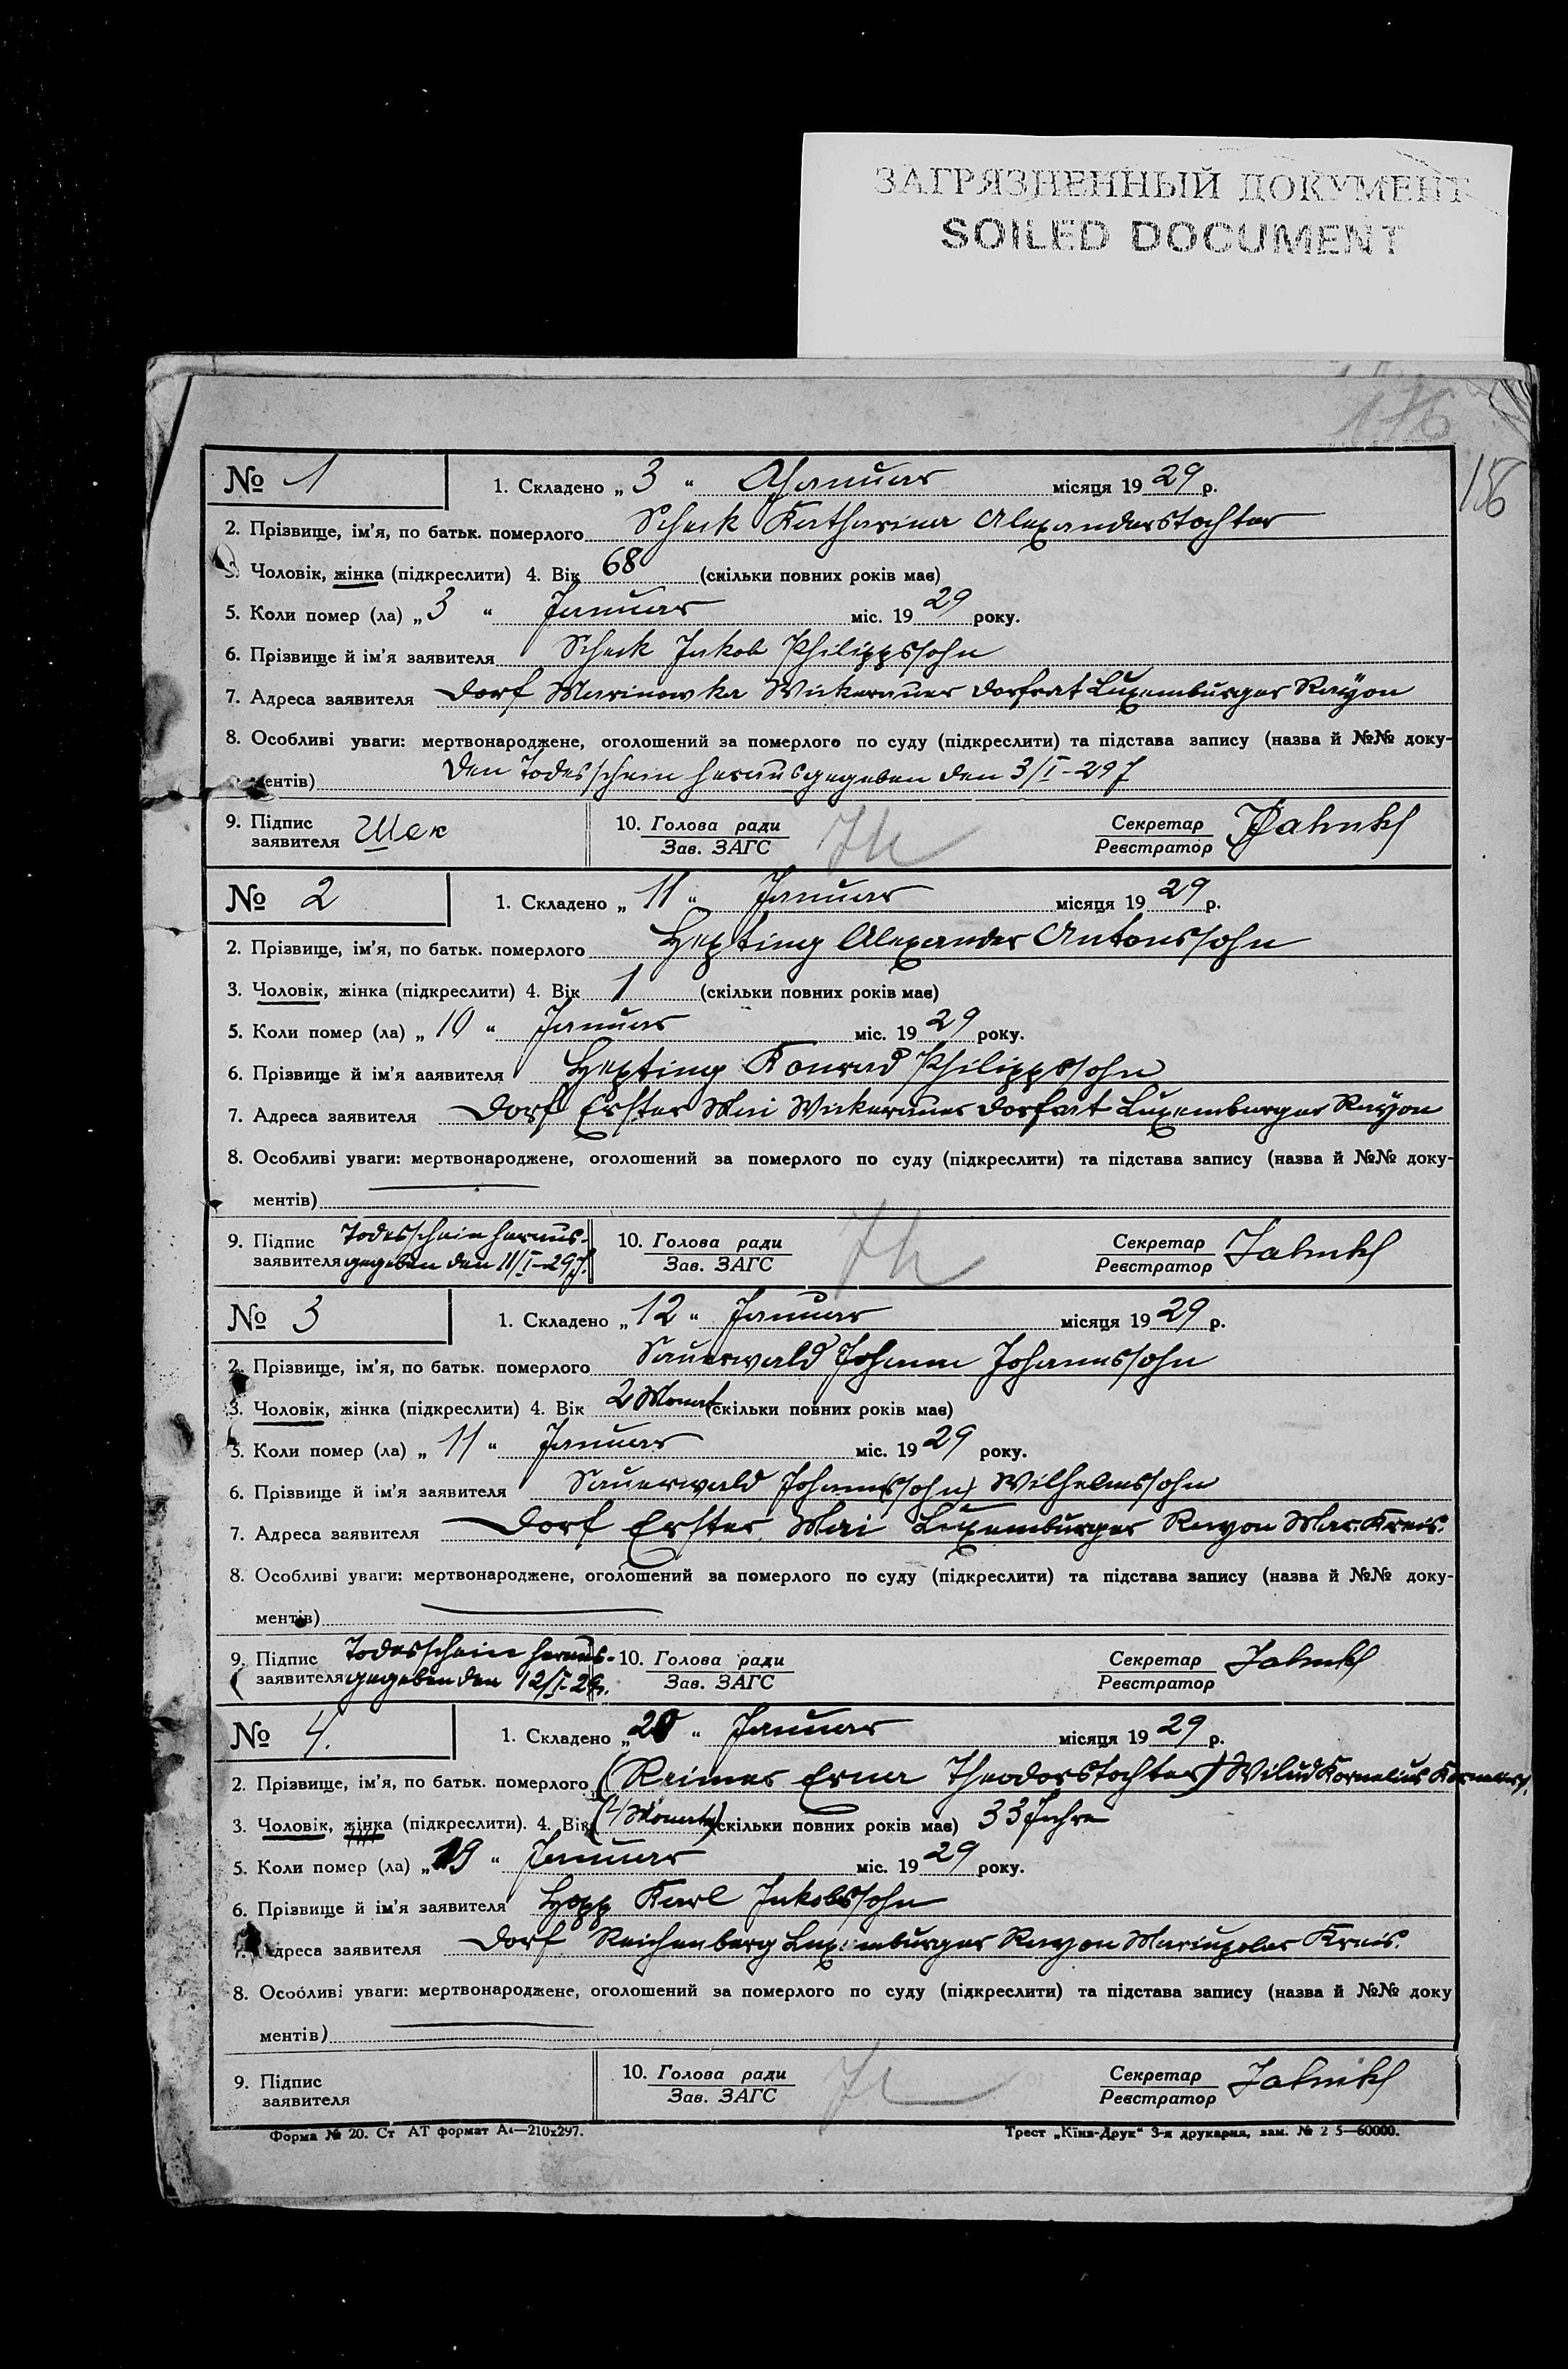 ЗАГРЯЗНЕННЫЙ ДОКУМЕНТ
SOILED DOCUMENT
176
№ 1 1. Складено „ 3 “ Januar місяця 19 29 р.
2. Прізвище, ім'я, по батьк. померлого Scheck Katharina Alexanderstochter
3. Чоловік, жінка (підкреслити) 4. Вік 68 (скільки повних років має)
5. Коли помер (ла) „ 3 “ Januar міс. 19 29 року.
6. Прізвище й ім'я заявителя Scheck Jakob Philippssohn
7. Адреса заявителя Dorf Marinowka Wickerauer Dorfrat Luxemburger Rayon
8. Особливі уваги: мертвонароджене, оголошений за померлого по суду (підкреслити) та підстава запису (назва й №№ доку-
ментів) Den Todesschein herausgegeben den 3/I-29 J
9. Підпис заявителя Шек 10. Голова ради Зав. ЗАГС Секретар Реєстратор
№ 2 1. Складено „ 11 “ Januar місяця 19 29 р.
2. Прізвище, ім'я, по батьк. померлого Hepting Alexander Antonssohn
3. Чоловік, жінка (підкреслити) 4. Вік 1 (скільки повних років має)
5. Коли помер (ла) „ 10 “ Januar міс. 19 29 року.
6. Прізвище й ім'я заявителя Hepting Konrad Philippssohn
7. Адреса заявителя Dorf Erster Mai Wickerauer Dorfrat Luxemburger Rayon
8. Особливі уваги: мертвонароджене, оголошений за померлого по суду (підкреслити) та підстава запису (назва й №№ доку-
ментів)
9. Підпис заявителя Todesschein heraus- gegeben den 11/I-29 J. 10. Голова ради Зав. ЗАГС Секретар Реєстратор
№ 3 1. Складено „ 12 “ Januar місяця 19 29 р.
2. Прізвище, ім'я, по батьк. померлого Sauerwald Johann Johannssohn
3. Чоловік, жінка (підкреслити) 4. Вік 2 Monat (скільки повних років має)
5. Коли помер (ла) „ 11 “ Januar міс. 19 29 року.
6. Прізвище й ім'я заявителя Sauerwald Johann(ssohn) Wilhelmssohn
7. Адреса заявителя Dorf Erster Mai Luxemburger Rayon Mar. Kreis.
8. Особливі уваги: мертвонароджене, оголошений за померлого по суду (підкреслити) та підстава запису (назва й №№ доку-
ментів)
9. Підпис заявителя Todesschein heraus- gegeben den 12/I-29. 10. Голова ради Зав. ЗАГС Секретар Реєстратор
№ 4. 1. Складено „ 20 “ Januar місяця 19 29 р.
2. Прізвище, ім'я, по батьк. померлого (Reimer Erna Theodorstochter) Kornelius
3. Чоловік, жінка (підкреслити). 4. Вік Monate) (скільки повних років має) 33 Jahre
5. Коли помер (ла) „ 19 “ Januar міс. 19 29 року.
6. Прізвище й ім'я заявителя Hopp Karl Jakobssohn
7. Адреса заявителя Dorf Reichenberg Luxemburger Rayon Mariupoler Kreis.
8. Особливі уваги: мертвонароджене, оголошений за померлого по суду (підкреслити) та підстава запису (назва й №№ доку
ментів)
9. Підпис заявителя 10. Голова ради Зав. ЗАГС Секретар Реєстратор
Форма № 20. Ст АТ формат А4—210х297. Трест „Київ-Друк“ 3-я друкарня, зам. № 2 5—60000.